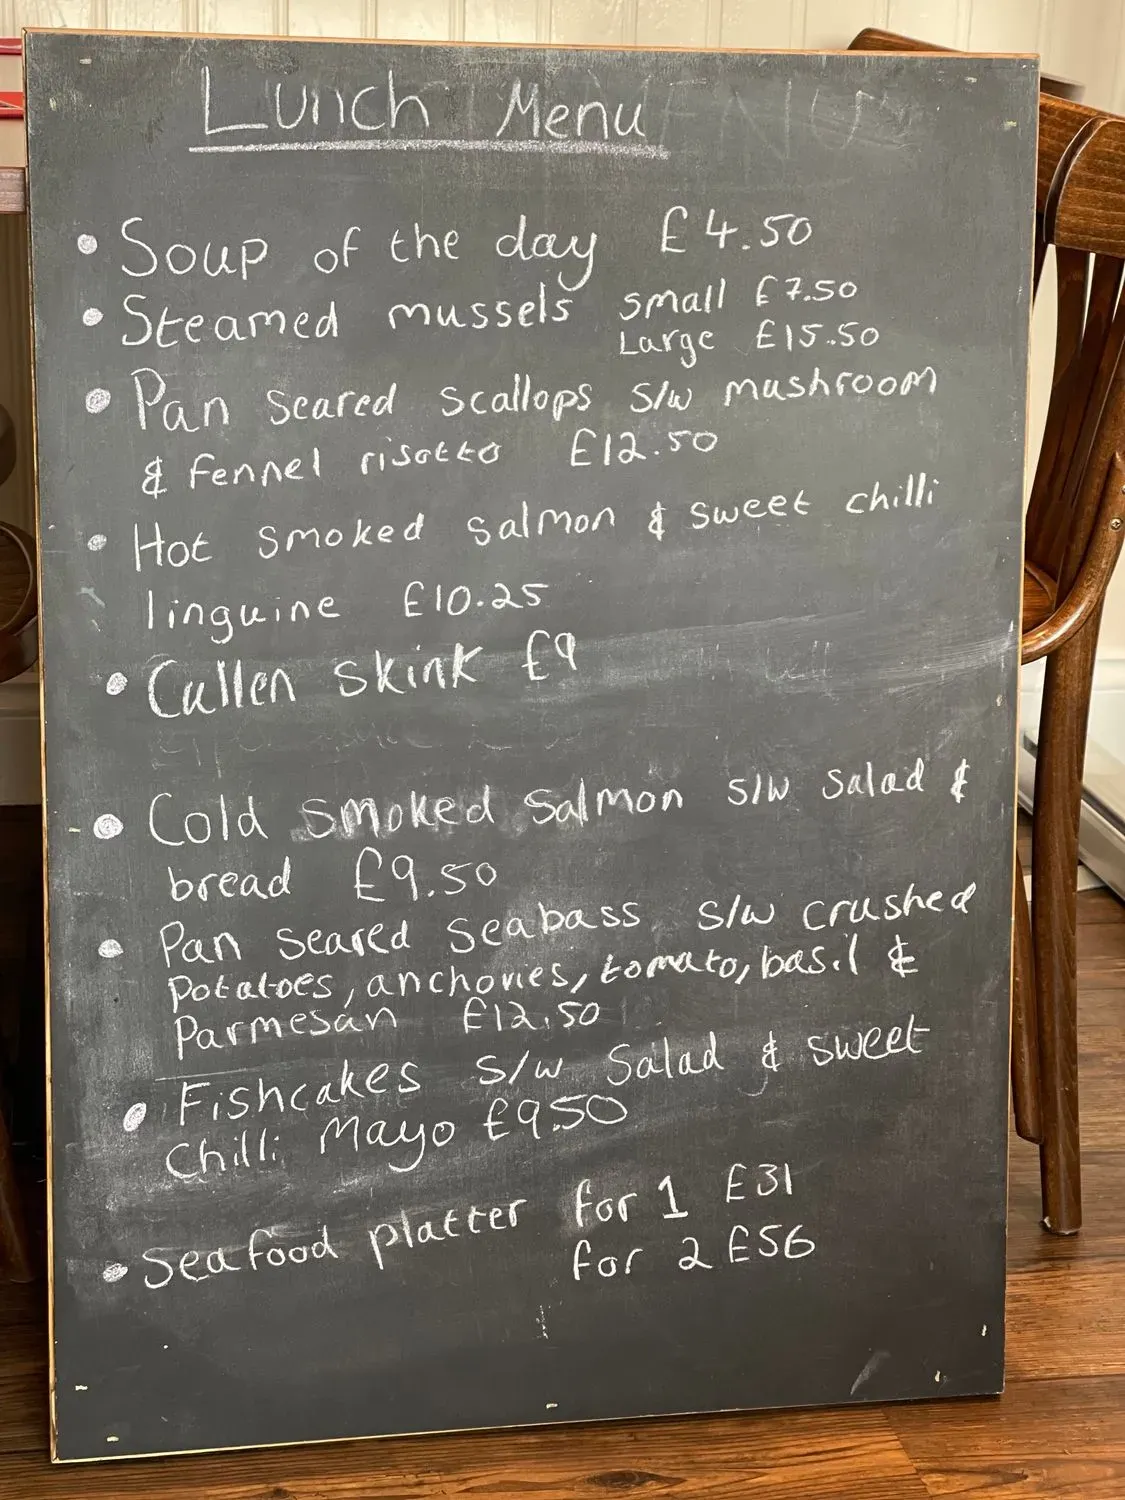 Lunch Menu
• Soup of the day £4.50
• Steamed mussels small £7.50
Large £15.50
• Pan seared scallops s/w mushroom
& fennel risotto £12.50
• Hot smoked salmon & sweet chilli
linguine £10.25
• Cullen skink £9
• Cold smoked salmon s/w salad &
bread £9.50
• Pan seared seabass s/w crushed
potatoes, anchovies, tomato, basil &
Parmesan £12.50
• Fishcakes s/w salad & sweet
Chilli Mayo £9.50
• Seafood platter for 1 £31
for 2 £56